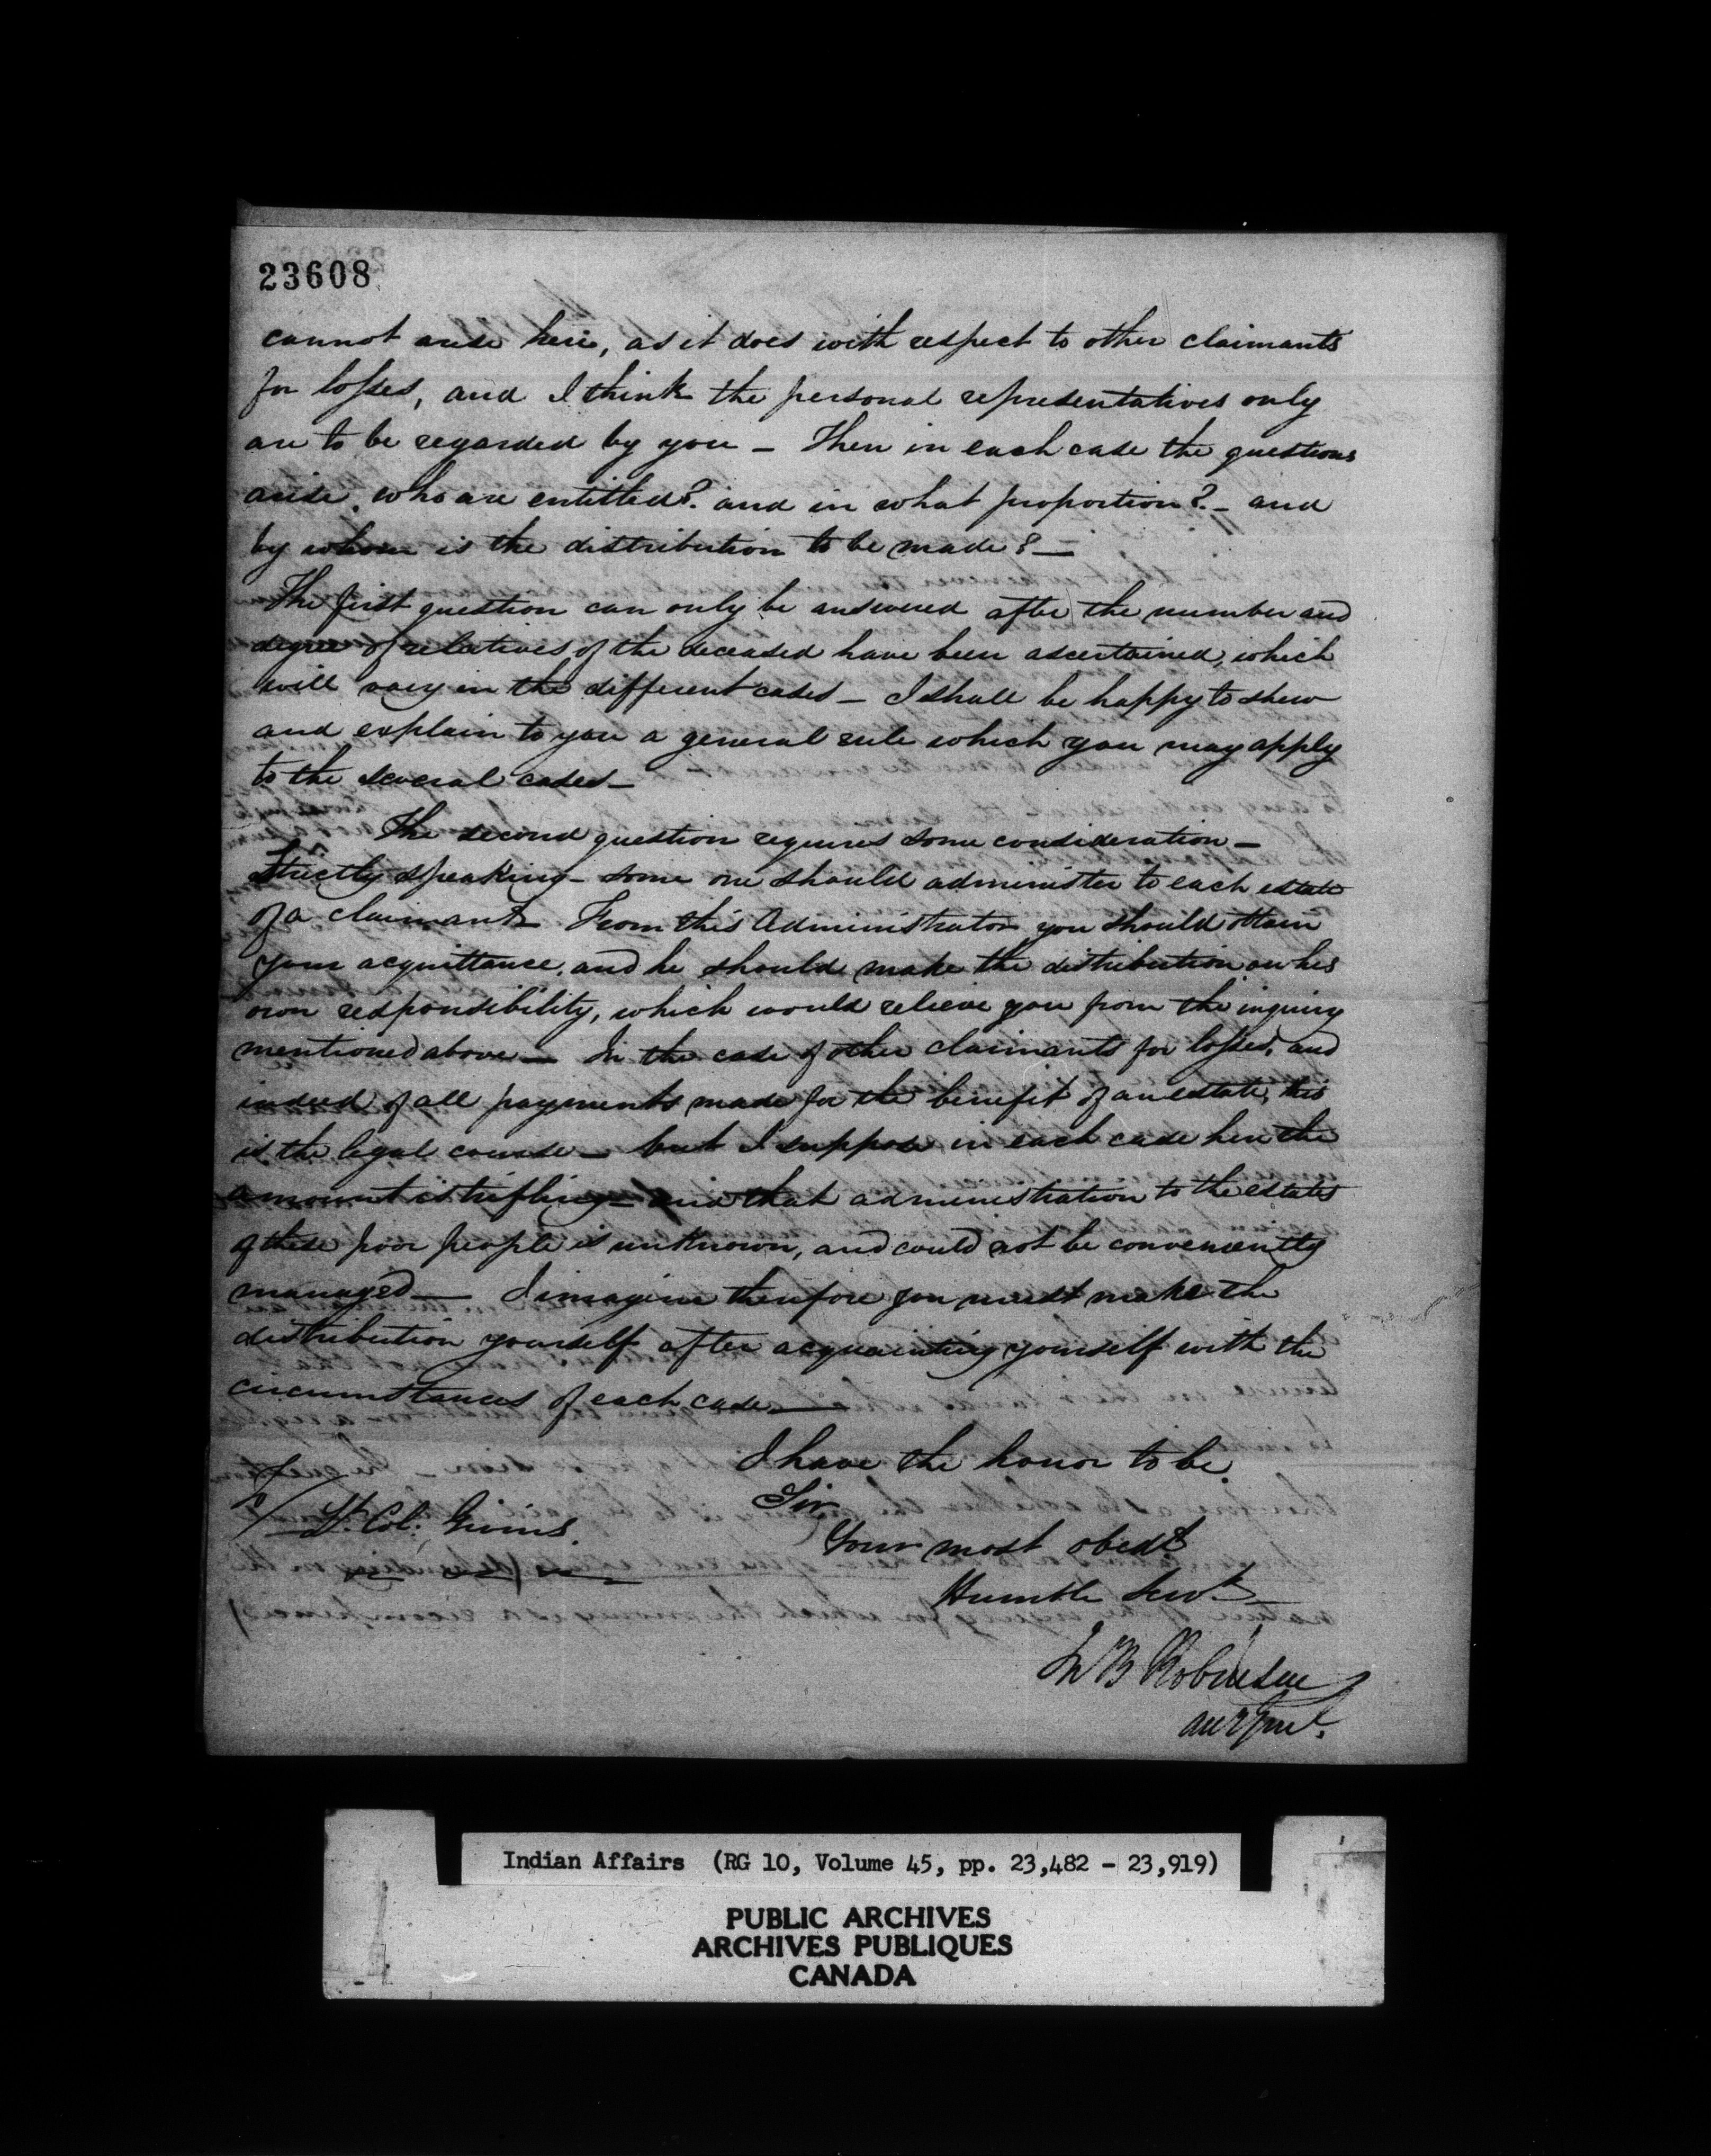 23608
cannot arise here, as it does with respect to other claimants
for losses, and I think the personal representatives only
are to be regarded by you – Then in each case the questions
arise. who are entitled? and in what proportion? – and
by whom is the distribution to be made? —
The first question can only be answered after the number and
degree of relatives of the deceased have been ascertained, which
will vary in the different cases – I shall be happy to shew
and explain to you a general rule which you may apply
to the several cases –
The second question requires some consideration –
Strictly speaking – some one should administer to each estate
of a claimant – From this Administrator you should obtain
your acquittance, and he should make the distribution on his
own responsibility, which would relieve you from the inquiry
mentioned above — In the case of other claimants for losses, and
indeed of all payments made for the benefit of an estate, this
is the legal course – but I suppose in each case here the
amount is trifling – and that administration to the estates
of these poor people is unknown, and could not be conveniently
managed — I imagine therefore you must make the
distribution yourself after acquainting yourself with the
circumstances of each case —
I have the honor to be
Sir
Lt. Col: Givins
Your most obedt
Humble Servt
Jn B Robinson
Atty Genl.
Indian Affairs (RG 10, Volume 45, pp. 23,482 - 23,919)
PUBLIC ARCHIVES
ARCHIVES PUBLIQUES
CANADA